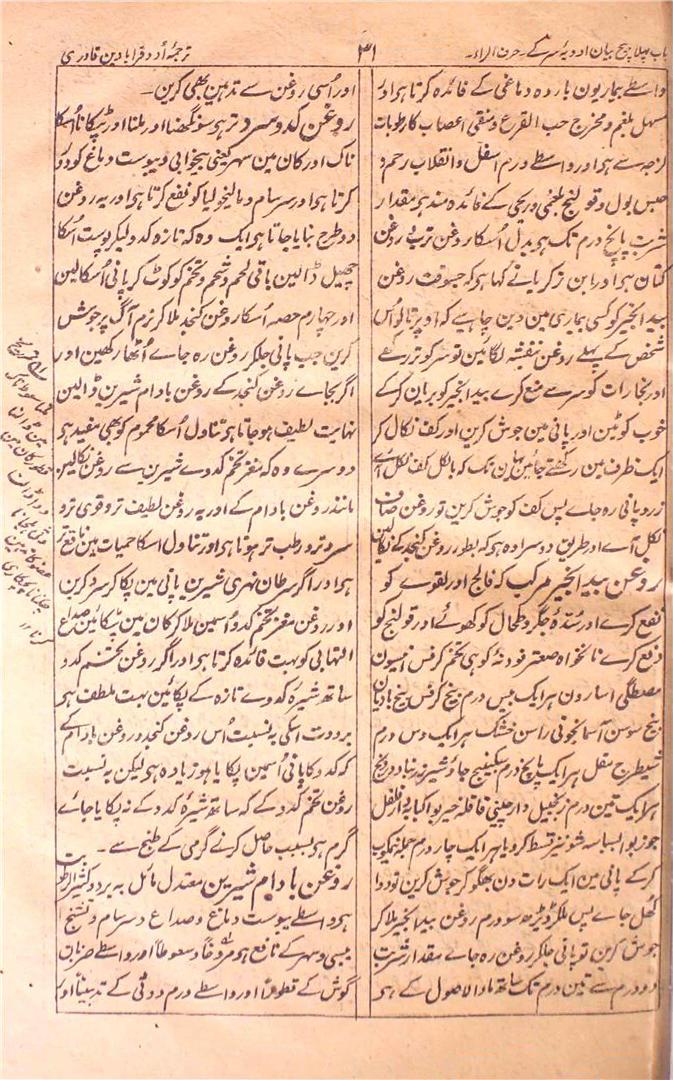 باب پہلا بیچ بیان ادویۂ سر کے۔ حرف الراء۔
۳۱
ترجمۂ اردو قرابادین قادری
واسطے بیماریون باردہ دماغی کے فائدہ کرتا ہو اور
مسہل بلغم و مخرج حب القرع و منقی اعصاب کا رطوبات
لزجہ سے ہو اور واسطے ورم اسفل و انقلاب رحم و
حبس بول و قولنج بلغمی و ریحی کے فائدہ مند ہو مقدار
شربت پانچ درم تک ہو بدل اسکا روغن ترب یا روغن
کتان ہو اور ابن زکریا نے کہا ہو کہ جسوقت روغن
بید انجیر کو کسی بیماری مین دین چاہیے کہ اوپر تالو اُس
شخص کے پہلے روغن بنفشہ لگائین تو سر کو تر رکھے
اور بخارات کو سر سے منع کرے بید انجیر کو بریان کر کے
خوب کوٹین اور پانی مین جوش کرین اور کف نکال کر
ایک طرف مین رکھتے جائین یہان تک کہ بالکل کف نکل آئے
زرد پانی رہ جاے پس کف کو جوش کرین تو روغن صاف
نکل آے اور طریق دوسرا وہ ہو کہ بطور روغن کنجد کے نکالین
روغن بید انجیر مرکب کہ فالج اور لقوے کو
نفع کرے اور سُدّۂ جگر و طحال کو کھولے اور قولنج کو
دفع کرے نانخواہ صعتر فودنہ کوہی تخم کرفس انیسون
مصطگی اسارون ہر ایک بیس درم بیخ کرفس بیخ بادیان
بیخ سوسن آسمانجونی راسن خشک ہر ایک دس درم
شیطرج مقل ہر ایک پانچ درم سکبینج جاوشیر زرنباد درونج
ہر ایک تین درم زنجبیل دارچینی قاقلہ خیربوا کبابہ دارفلفل
جوزبوا بسباسہ شونیز قسط کرویا ہر ایک چار درم جملہ نیمکوب
کر کے پانی مین ایک رات دن بھگو کر جوش کرین تو دوا
گھل جاے پس ملکر ڈیڑھ سو درم روغن بید انجیر ملا کر
جوش کرین تو پانی جلکر روغن رہ جاے مقدار شربت
دو درم سے تین درم تک ساتھ ماء الاصول کے ہو
اور اُسی روغن سے تدہین بھی کرین۔
روغن کدو سرد تر ہو سونگھنا اور ملنا اور ٹپکانا اُسکا
ناک اور کان مین سہر یعنی بیخوابی و یبوست دماغ کو دور
کرتا ہو اور سرسام و مالیخولیا کو نفع کرتا ہو اور یہ روغن
دو طرح بنایا جاتا ہو ایک وہ کہ تازہ کدو لیکر پوست اُسکا
چھیل ڈالین باقی لحم و شحم و تخم کو کوٹ کر پانی اُسکا لین
اور چہارم حصہ اُسکا روغن کنجد ملا کر نرم آگ پر جوش
کرین جب پانی جلکر روغن رہ جاے اُٹھا رکھین اور
اگر بجاے روغن کنجد کے روغن بادام شیرین ڈالین
نہایت لطیف ہو جاتا ہو تناول اُسکا محموم کو بھی مفید ہو
دوسرے وہ کہ مغز تخم کدوے شیرین سے روغن نکالین
مانند روغن بادام کے اور یہ روغن لطیف تر و قوی تر و
سرد تر و رطب تر ہوتا ہو اور تناول اسکا حمیات مین نافع تر
ہو اور اگر سرطان نہری شیرین پانی مین پکا کر سرد کرین
اور روغن مغز تخم کدو اُسمین ملا کر کان مین ٹپکائین صداع
التہابی کو بہت فائدہ کرتا ہو اور اگر روغن تخم کدو
ساتھ شیرہ کدوے تازہ کے پکائین بہت ملطف ہو
برودت اسکی بہ نسبت اُس روغن کنجد و روغن بادام کے
کہ کدو کا پانی اُسمین پکایا ہو زیادہ ہو لیکن بہ نسبت
روغن تخم کدو کے کہ ساتھ شیرۂ کدو کے نہ پکایا جائے
گرم ہو بسبب حاصل کرنے گرمی کے طبخ سے۔
روغن بادام شیرین معتدل مائل بہ برد و کثیر الرطوبت
ہو واسطے یبوست دماغ و صداع و سرسام و تشنج
یبسی و سہر کے نافع ہو مروخاً و سعوطاً اور واسطے ضربان
گوش کے قطوراً اور واسطے ورم دوقی کے تدہیناً اور